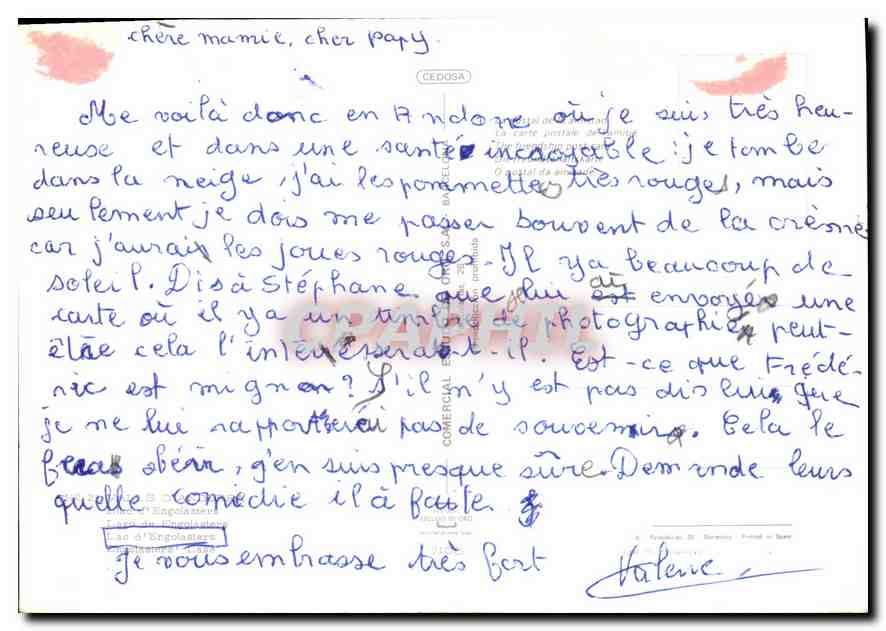 chère mamie, cher papy.
CEDOSA
Me voilà donc en Andorre où je suis très heu-
reuse et dans une santé incroyable : je tombe
dans la neige, j'ai les pommettes très rouges, mais
seulement je dois me passer souvent de la crème
car j'aurais les joues rouges. Il y a beaucoup de
soleil. Dis à Stéphane que je lui ai envoyés une
carte où il y a un timbre de photographie, peut-
être cela l'intéressera-t-il. Est-ce que Frédé-
ric est mignon ? S'il n'y est pas dis lui que
je ne lui rapporterai pas de souvenirs. Cela le
feras obéir, j'en suis presque sûre. Demande leurs
quelle comédie il à faite.
Lac d'Engolasters
Lago de Engolasters
Lac d'Engolasters
Engolasters' Lake
Je vous embrasse très fort
Valérie
La carte postale de l'amitié
O postal da amizade
COMERCIAL
BARCELONA
prohibida
OPAPHIL